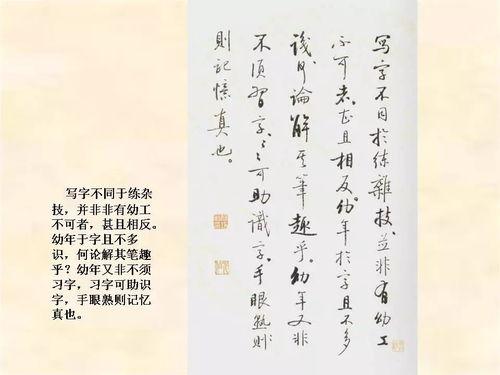 写字不同于练杂
技，并非非有幼工
不可者，甚且相反。
幼年于字且不多
识，何论解其笔趣
乎？幼年又非不须
习字，习字可助识
字，手眼熟则记忆
真也。
写字不同於练雜技並非有幼工
不可者。甚且相反。幼年於字且不多
識何論解其筆趣乎。幼年又非
不須習字。〻可助識字。手眼熟則
則記憶真也。